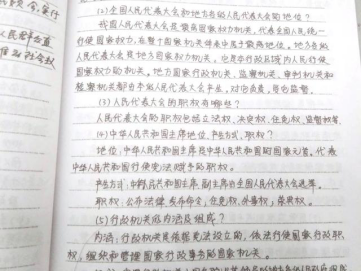 (2)全国人民代表大会和地方各级人民代表大会的地位?
我国人民代表大会是最高国家权力机关,代表全国人民统一
行使国家权力,在整个国家机关体系中居于最高地位。地方各级
人民代表大会是地方国家权力机关,也是本行政区域内人民行使
国家权力的机关。地方国家行政机关、监察机关、审判机关和
检察机关都由本级人民代表大会产生,对它负责,受它监督。
(3)人民代表大会的职权有哪些?
人民代表大会的职权包括立法权、决定权、任免权、监督权等
(4)中华人民共和国主席地位、产生方式、职权?
地位:中华人民共和国主席是中华人民共和国国家元首。代表
中华人民共和国行使宪法赋予的职权。
产生方式:中华人民共和国主席、副主席由全国人民代表大会选举。
职权:公布法律、发布命令,任免权,外事权,荣典权。
(5)行政机关的内涵及组成?
内涵:行政机关是依据宪法设立的,依法行使国家行政职
权,组织和管理国家行政事务的国家机关。